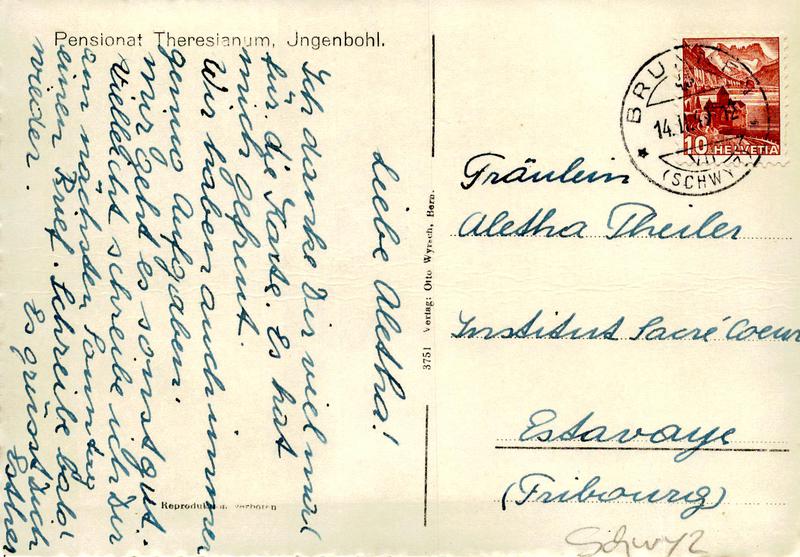 Pensionat Theresianum, Jngenbohl.
Liebe Aletha!
Ich danke Dir viel mal
für die Karte. Es hat
mich gefreut.
Wir haben auch immer
genug Aufgaben.
Mir geht es sonst gut.
Vielleicht schreibe ich Dir
am nächsten Sonntag
einen Brief. Schreibe bald
wieder.
Es grüsst Dich
Esther
Reproduktion verboten
3751 Verlag: Otto Wyrsch, Bern.
BRUNNEN
14.
(SCHWYZ)
10 HELVETIA
Fräulein
Aletha Theiler
Institut Sacré Coeur
Estavaye
(Fribourg)
Schwyz